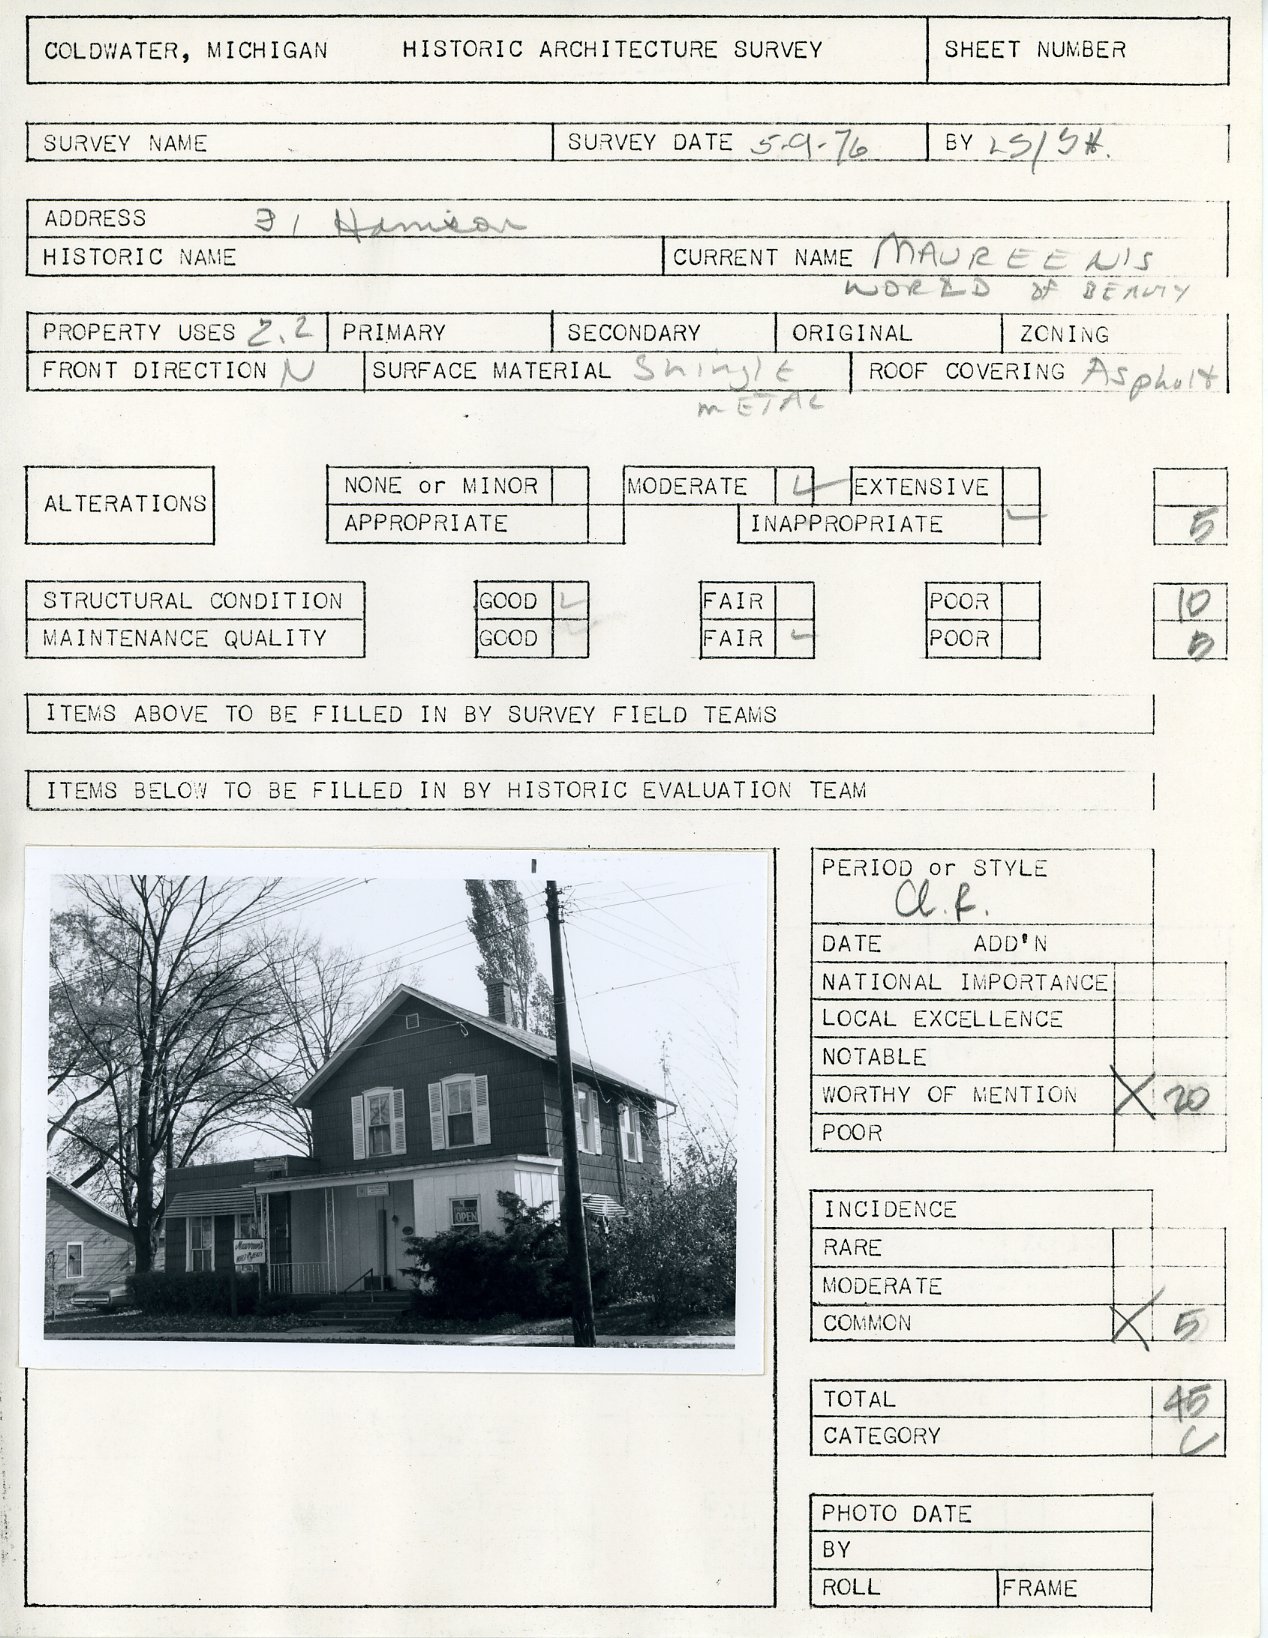 COLDWATER, MICHIGAN HISTORIC ARCHITECTURE SURVEY SHEET NUMBER
SURVEY NAME SURVEY DATE 5-9-76 BY LS/SH.
ADDRESS 31 Harrison
HISTORIC NAME CURRENT NAME MAUREEN'S
WORLD OF BEAUTY
PROPERTY USES 2.2 PRIMARY SECONDARY ORIGINAL ZONING
FRONT DIRECTION N SURFACE MATERIAL Shingle ROOF COVERING Asphalt
METAL
ALTERATIONS
NONE or MINOR MODERATE EXTENSIVE
APPROPRIATE INAPPROPRIATE 5
STRUCTURAL CONDITION GOOD FAIR POOR 10
MAINTENANCE QUALITY GOOD FAIR POOR 5
ITEMS ABOVE TO BE FILLED IN BY SURVEY FIELD TEAMS
ITEMS BELOW TO BE FILLED IN BY HISTORIC EVALUATION TEAM
OPEN
Maureen's
PERIOD or STYLE
Cl. R.
DATE ADD'N
NATIONAL IMPORTANCE
LOCAL EXCELLENCE
NOTABLE
WORTHY OF MENTION X 20
POOR
INCIDENCE
RARE
MODERATE
COMMON X 5
TOTAL 45
CATEGORY C
PHOTO DATE
BY
ROLL FRAME